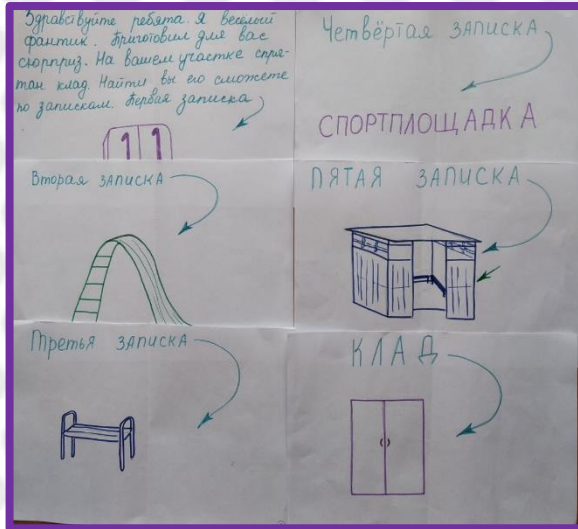 Здравствуйте ребята. Я весёлый
фантик. Приготовил для вас
сюрприз. На вашем участке спря-
тан клад. Найти вы его сможете
по запискам. Первая записка
11
Вторая записка
Третья записка
Четвёртая записка
СПОРТПЛОЩАДКА
ПЯТАЯ ЗАПИСКА
КЛАД